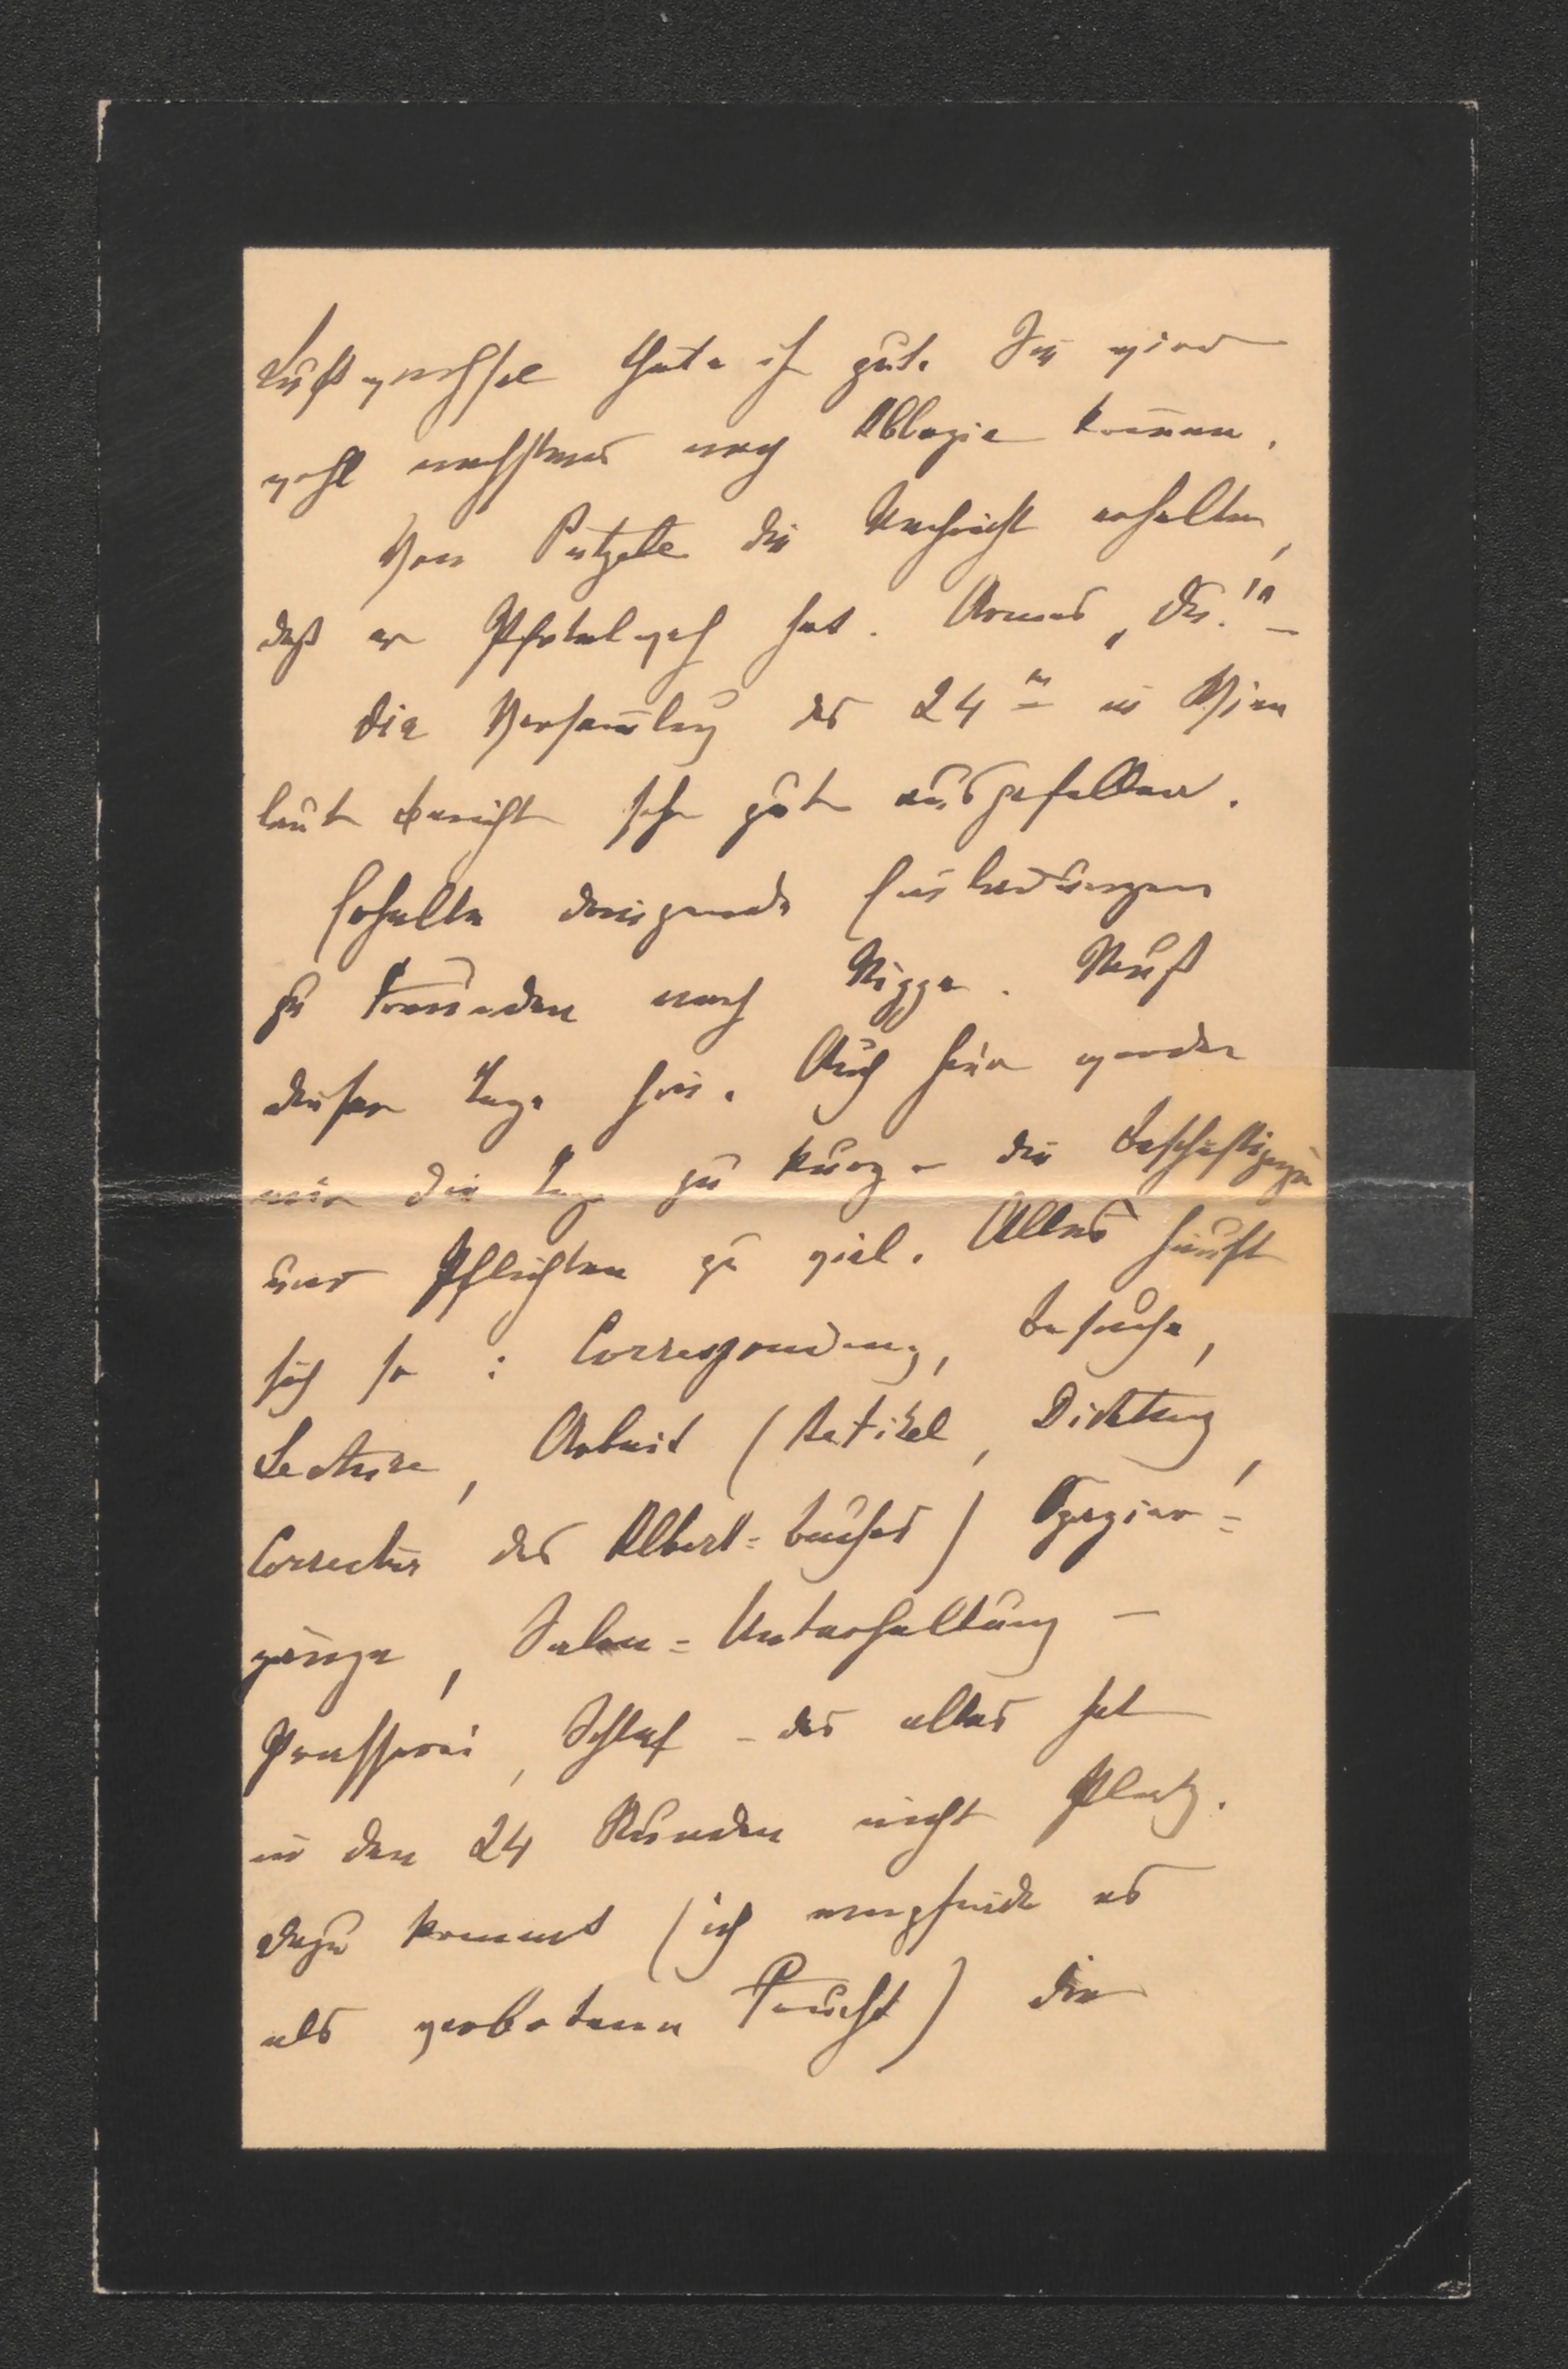 Luftwechsel thäte ih gut. Sie wird
wohl nächstens nach Abbazia kom̄en.
Von Putzele die Nachricht erhalten,
daß er Zahnweh hat. Armes „Die!"
Die Versam̄lung des 24ten in Wien
laut Bericht sehr gut ausgefallen.
Erhalte dringende Einladungen
zu Freunden nach Nizza. Muß
dieser Tage hin. Auch hier werden
mir die Tage zu kurz – die Beschäftigungen
und Pflichten zu viel. Alles häuft
sich so: Correspondenz, Besuche,
Lecture, Arbeit (Artikel, Dichtung,
Correctur des Albert-Buches) Spazier-
gänge, Salon-Unterhaltung –
Prasserei, Schlaf – das alles hat
in den 24 Stunden nicht Platz.
Dazu kommt (ich empfinde es
als verbotene Frucht) die